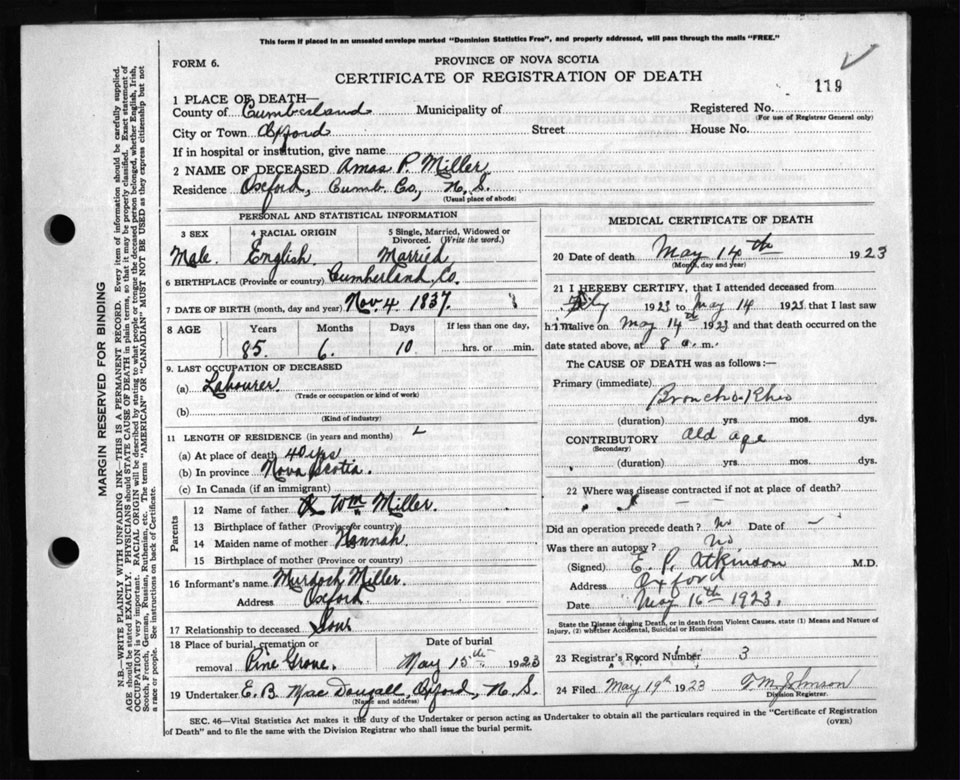 This form if placed in an unsealed envelope marked "Dominion Statistics Free", and properly addressed, will pass through the mails "FREE."
FORM 6.
PROVINCE OF NOVA SCOTIA
CERTIFICATE OF REGISTRATION OF DEATH
119
1 PLACE OF DEATH—
County of Cumberland Municipality of Registered No.
(For use of Registrar General only)
City or Town Oxford Street House No.
If in hospital or institution, give name
2 NAME OF DECEASED Amos P. Miller
Residence Oxford, Cumb. Co, N. S.
(Usual place of abode)
PERSONAL AND STATISTICAL INFORMATION
3 SEX 4 RACIAL ORIGIN 5 Single, Married, Widowed or Divorced. (Write the word.)
Male. English Married
6 BIRTHPLACE (Province or country) Cumberland, Co.
7 DATE OF BIRTH (month, day and year) Nov. 4 1837.
8 AGE Years Months Days If less than one day,
85. 6. 10 hrs. or min.
9. LAST OCCUPATION OF DECEASED
(a) Labourer.
(Trade or occupation or kind of work)
(b)
(Kind of industry)
11 LENGTH OF RESIDENCE (in years and months)
(a) At place of death 40 yrs
(b) In province Nova Scotia.
(c) In Canada (if an immigrant)
Parents
12 Name of father Wm Miller.
13 Birthplace of father (Province or country)
14 Maiden name of mother Hannah
15 Birthplace of mother (Province or country)
16 Informant's name Murdoch Miller.
Address Oxford.
17 Relationship to deceased Son
18 Place of burial, cremation or removal Pine Grove. Date of burial May 15th 1923
19 Undertaker E. B. Mac Dougall, Oxford, N. S.
(Name and address)
MEDICAL CERTIFICATE OF DEATH
20 Date of death May 14th 1923
(Month, day and year)
21 I HEREBY CERTIFY, that I attended deceased from
1923 to May 14 1923 that I last saw
him alive on May 14th 1923 and that death occurred on the
date stated above, at 8 a.m.
The CAUSE OF DEATH was as follows:—
Primary (immediate)
Broncho-
(duration) yrs. mos. dys.
CONTRIBUTORY old age
(Secondary)
(duration) yrs. mos. dys.
22 Where was disease contracted if not at place of death?
Did an operation precede death? No Date of –
Was there an autopsy? No
(Signed) E. P. Atkinson M.D.
Address Oxford
Date May 16th 1923.
State the Disease causing Death, or in death from Violent Causes, state (1) Means and Nature of
Injury, (2) whether Accidental, Suicidal or Homicidal
23 Registrar's Record Number 3
24 Filed May 19th 1923 T. M. Johnson
Division Registrar.
SEC. 46—Vital Statistics Act makes it the duty of the Undertaker or person acting as Undertaker to obtain all the particulars required in the "Certificate of Registration
of Death" and to file the same with the Division Registrar who shall issue the burial permit.
(OVER)
MARGIN RESERVED FOR BINDING
N.B.—WRITE PLAINLY WITH UNFADING INK—THIS IS A PERMANENT RECORD. Every item of information should be carefully supplied.
AGE should be stated EXACTLY. PHYSICIANS should STATE CAUSE OF DEATH in plain terms, so that it may be properly classified. Exact statement of
OCCUPATION is very important. RACIAL ORIGIN will be described by stating to what people or tongue the deceased person belonged, whether English, Irish,
Scotch, French, German, Russian, Ruthenian, etc. The terms "AMERICAN" OR "CANADIAN" MUST NOT BE USED as they express citizenship but not
a race or people. See instructions on back of Certificate.